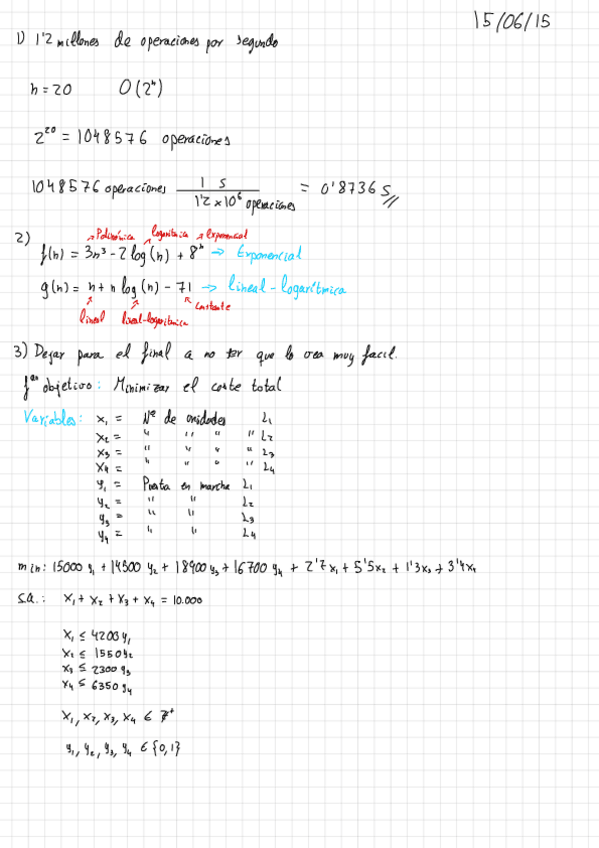 15/06/15
1) 1'2 millones de operaciones por segundo
n = 20 O(2ⁿ)
2²⁰ = 1048576 operaciones
1048576 operaciones 1 s / 1'2 x 10⁶ operaciones = 0'8736 s//
2) → Polinómica logarítmica → Exponencial
f(n) = 3n³ - 2 log(n) + 8ⁿ → Exponencial
g(n) = n + n log(n) - 71 → lineal-logarítmica
lineal lineal-logarítmica constante
3) Dejar para el final a no ser que lo vea muy facil.
fᵒⁿ objetivo: Minimizar el coste total
Variables: x₁ = Nº de unidades L₁
x₂ = " " " " L₂
x₃ = " " " " L₃
x₄ = " " " " L₄
y₁ = Puesta en marcha L₁
y₂ = " " L₂
y₃ = " " L₃
y₄ = " " L₄
min: 15000 y₁ + 14500 y₂ + 18900 y₃ + 16700 y₄ + 2'7 x₁ + 5'5 x₂ + 1'3 x₃ + 3'4 x₄
s.a.: x₁ + x₂ + x₃ + x₄ = 10.000
x₁ ≤ 4200 y₁
x₂ ≤ 1550 y₂
x₃ ≤ 2300 y₃
x₄ ≤ 6350 y₄
x₁, x₂, x₃, x₄ ∈ Z⁺
y₁, y₂, y₃, y₄ ∈ {0,1}